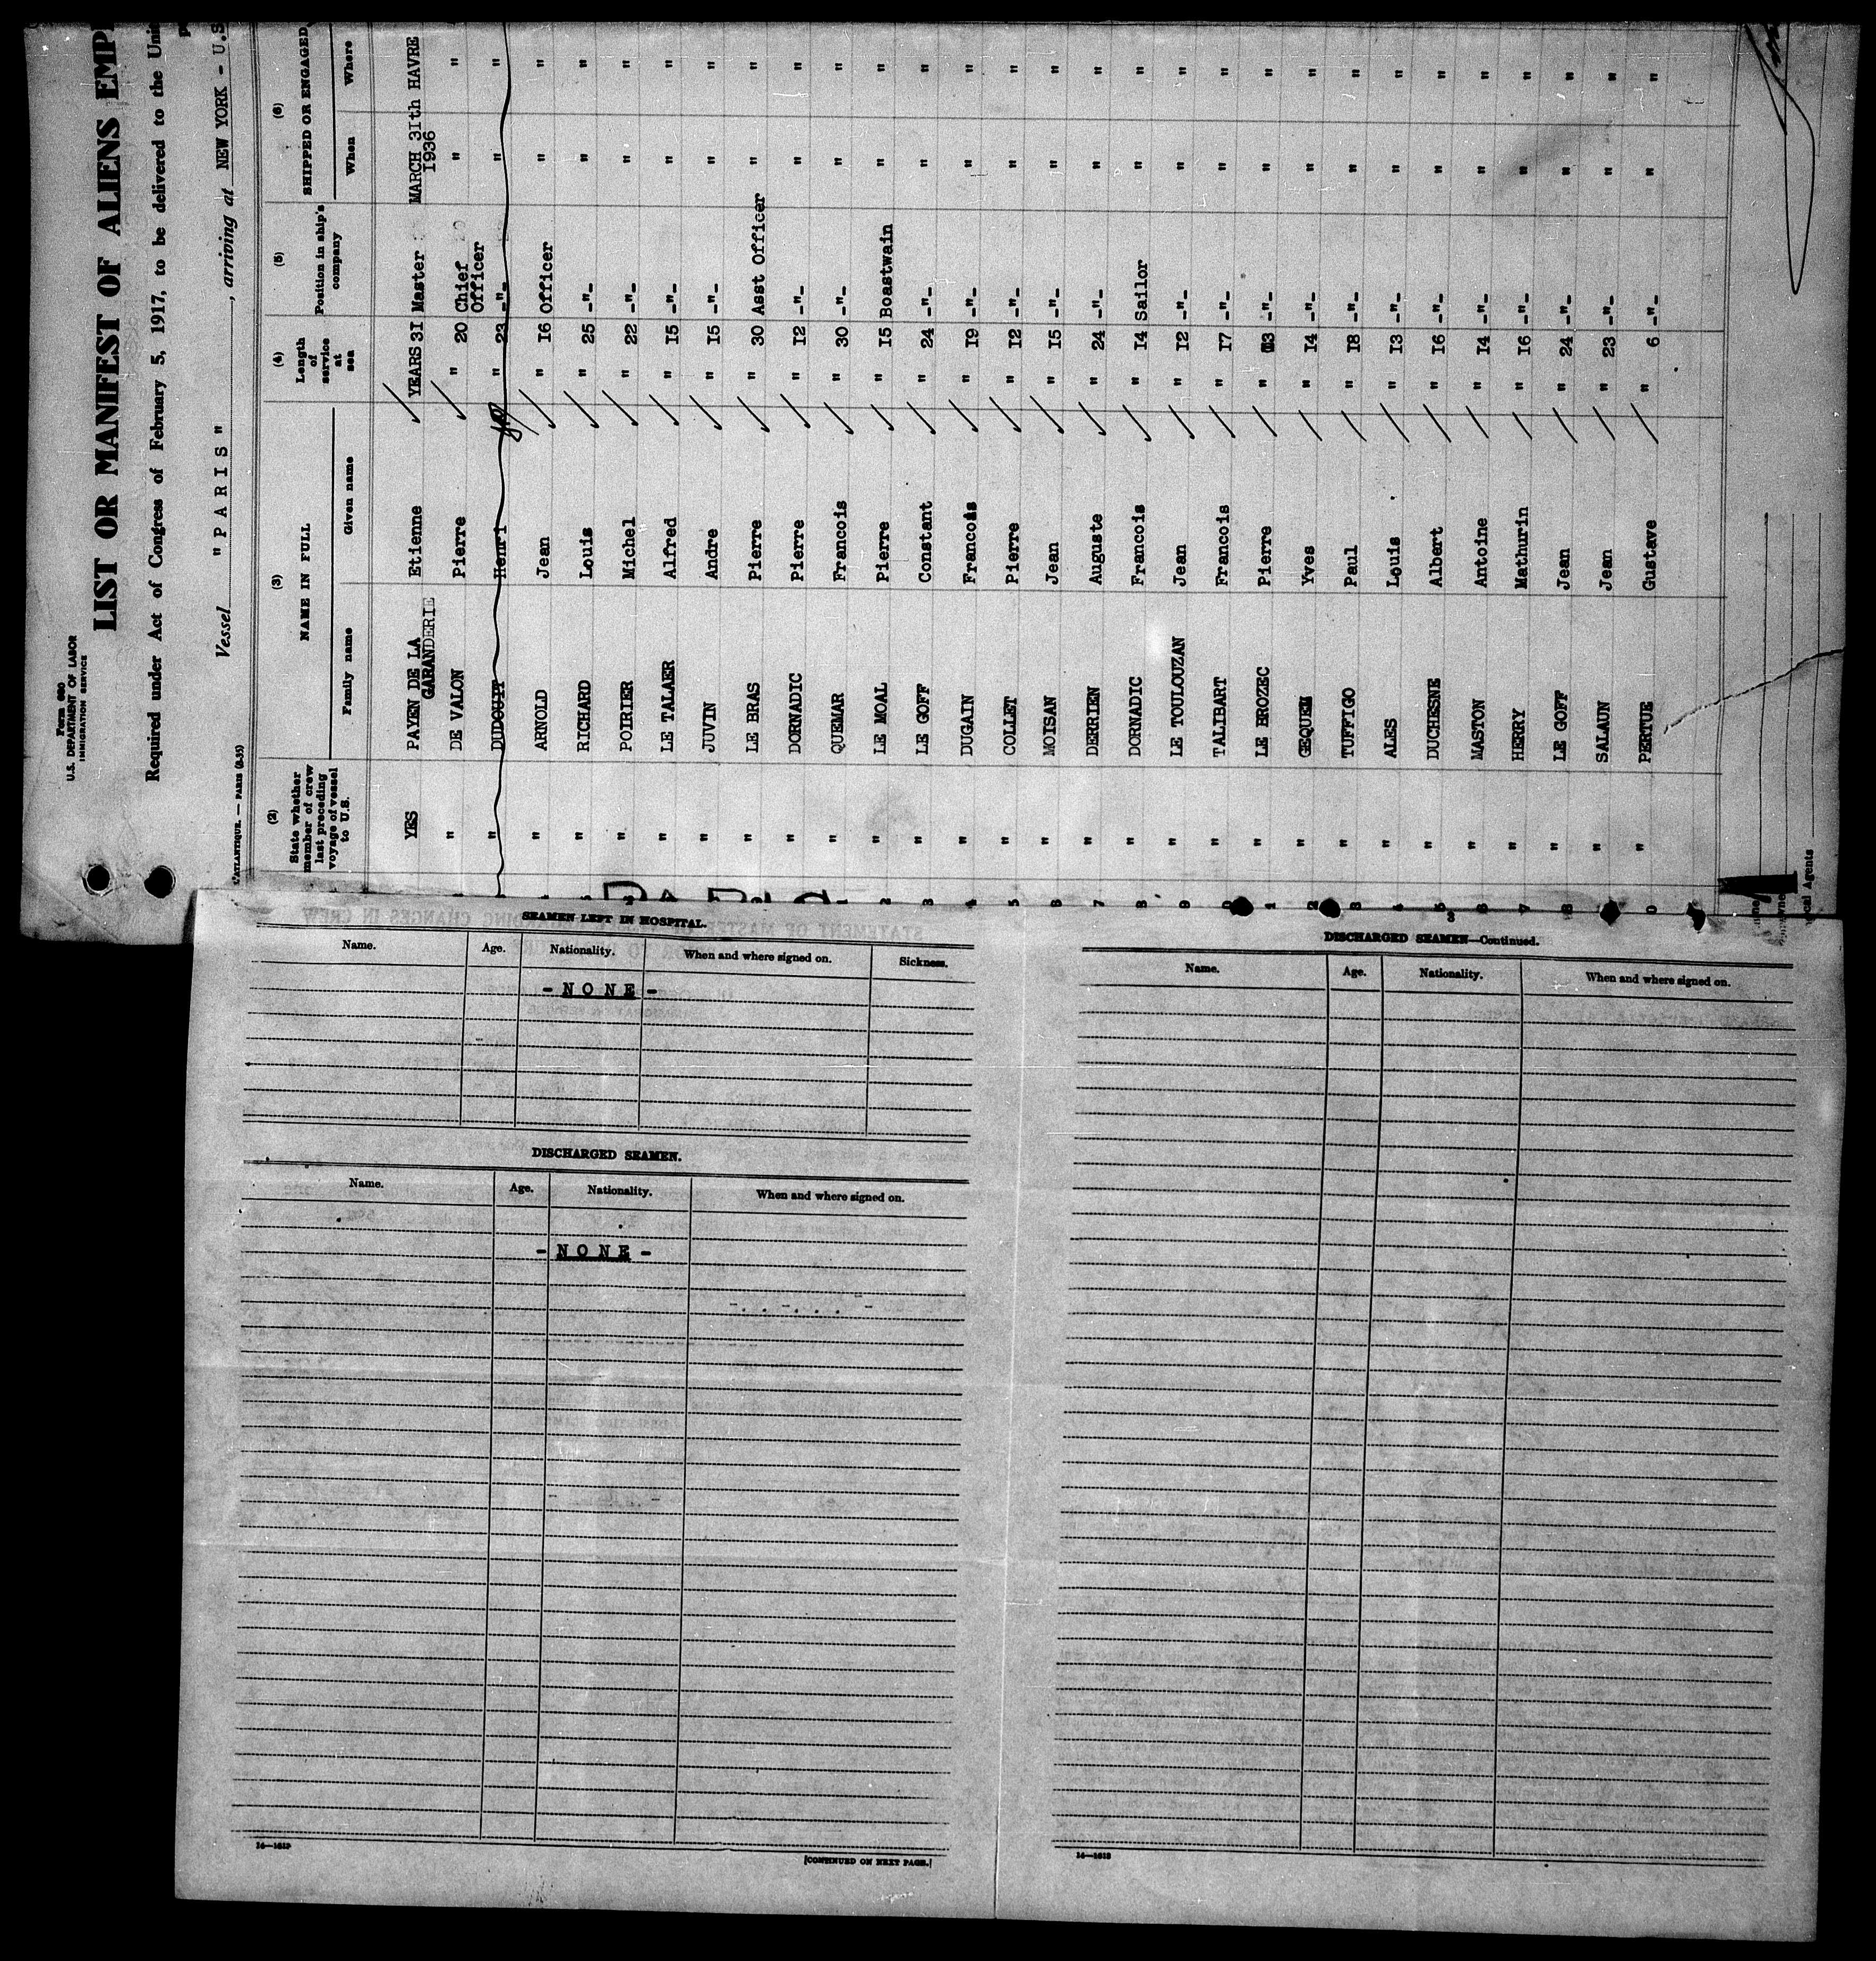 Form 680
U.S. DEPARTMENT OF LABOR
IMMIGRATION SERVICE
LIST OR MANIFEST OF ALIENS EMP
Required under Act of Congress of February 5, 1917, to be delivered to the Uni
Vessel "PARIS", arriving at NEW YORK - U.S
L'ATLANTIQUE. — PARIS (2.35)
(2) (3) (4) (5) (6)
State whether member of crew last preceding voyage of vessel to U.S. NAME IN FULL Length of service at sea Position in ship's company SHIPPED OR ENGAGED
Family name Given name When Where
YES PAYEN DE LA GARANDERIE Etienne YEARS 3I Master MARCH 3Ith I936 HAVRE
" DE VALON Pierre " 20 Chief Officer " "
" DUDOUIT Henri " 23 -"- " "
" ARNOLD Jean " I6 Officer " "
" RICHARD Louis " 25 -"- " "
" POIRIER Michel " 22 -"- " "
" LE TALAER Alfred " I5 -"- " "
" JUVIN Andre " I5 -"- " "
" LE BRAS Pierre " 30 Asst Officer " "
" DORNADIC Pierre " I2 -"- " "
" QUEMAR Francois " 30 -"- " "
2 " LE MOAL Pierre " I5 Boastwain " "
3 " LE GOFF Constant " 24 -"- " "
4 " DUGAIN Francois " I9 -"- " "
5 " COLLET Pierre " I2 -"- " "
6 " MOISAN Jean " I5 -"- " "
7 " DERRIEN Auguste " 24 -"- " "
8 " DORNADIC Francois " I4 Sailor " "
9 " LE TOULOUZAN Jean " I2 -"- " "
0 " TALIBART Francois " I7 -"- " "
1 " LE BROZEC Pierre " 3 -"- " "
2 " GEQUEM Yves " I4 -"- " "
3 " TUFFIGO Paul " I8 -"- " "
4 " ALES Louis " I3 -"- " "
5 " DUCHESNE Albert " I6 -"- " "
6 " MASTON Antoine " I4 -"- " "
7 " HERRY Mathurin " I6 -"- " "
8 " LE GOFF Jean " 24 -"- " "
" SALAUN Jean " 23 -"- " "
0 " PERTUE Gustave " 6 -"- " "
cal Agents
SEAMEN LEFT IN HOSPITAL.
Name. Age. Nationality. When and where signed on. Sickness.
- N O N E -
DISCHARGED SEAMEN.
Name. Age. Nationality. When and where signed on.
- N O N E -
14—1613
[CONTINUED ON NEXT PAGE.]
DISCHARGED SEAMEN—Continued.
Name. Age. Nationality. When and where signed on.
14—1613